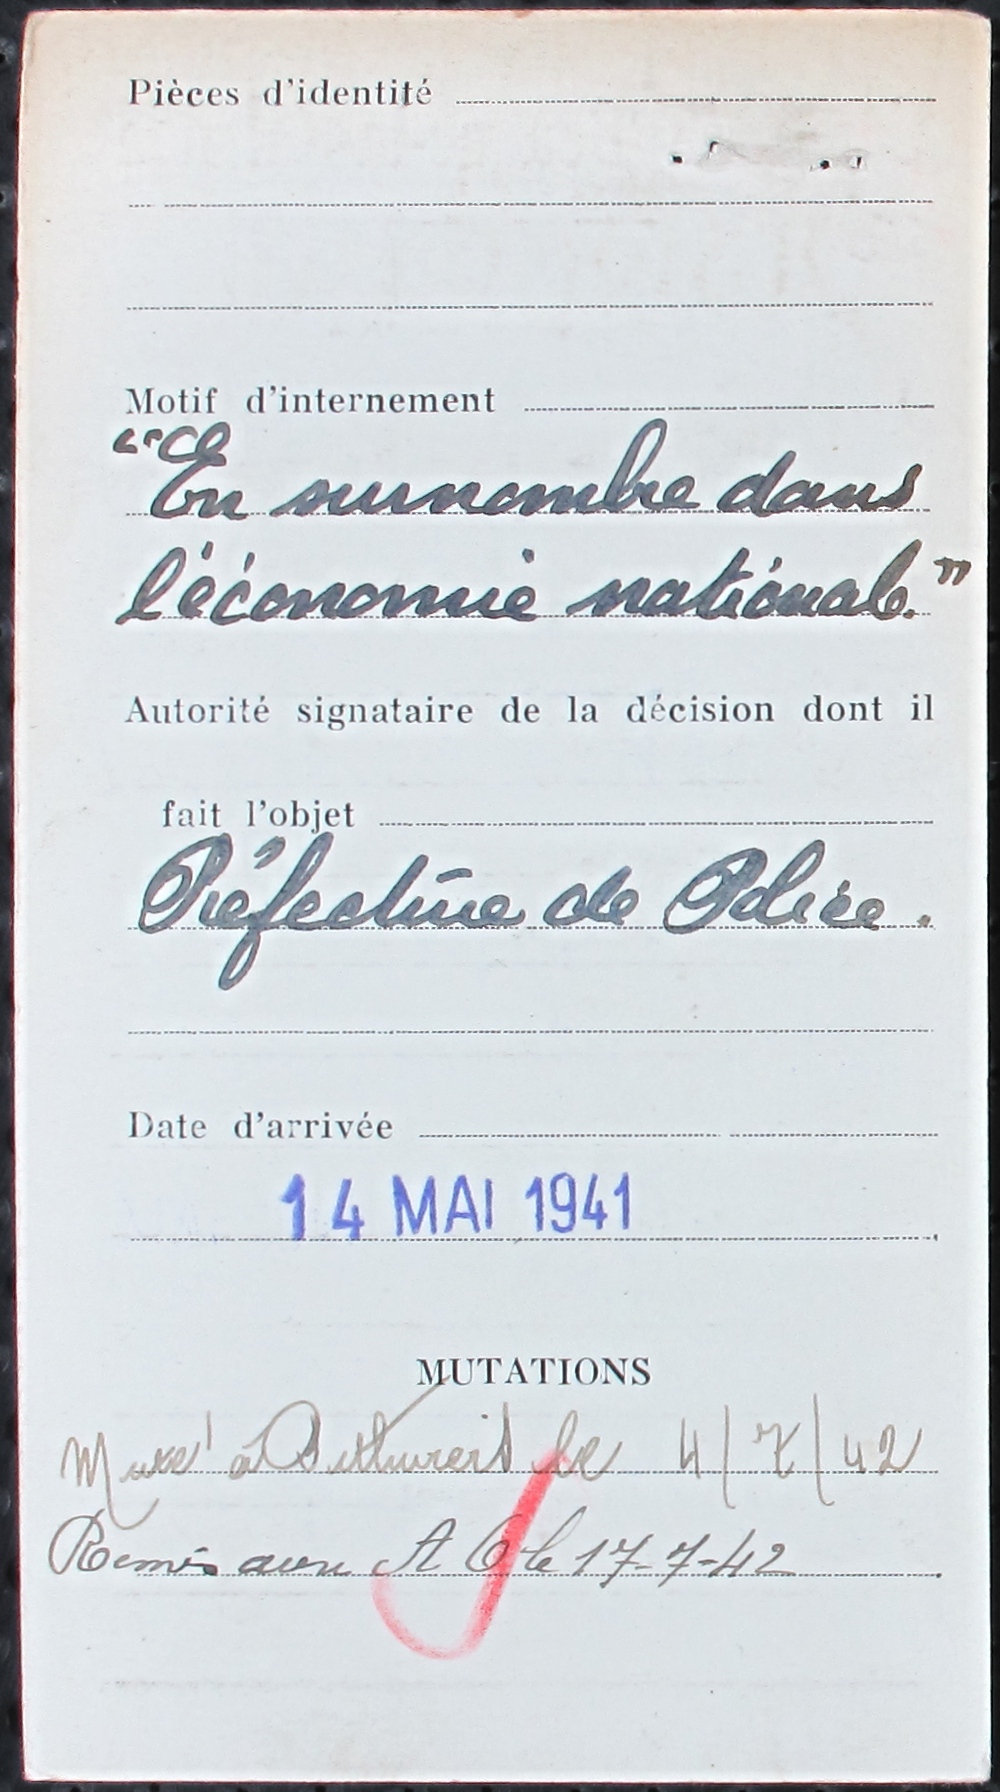 Pièces d'identité
Motif d'internement
"En surnombre dans
l'économie nationale."
Autorité signataire de la décision dont il
fait l'objet
Préfecture de Police.
Date d'arrivée
14 MAI 1941
MUTATIONS
Muté à Pithiviers le 4/7/42
Remis aux A le 17-7-42